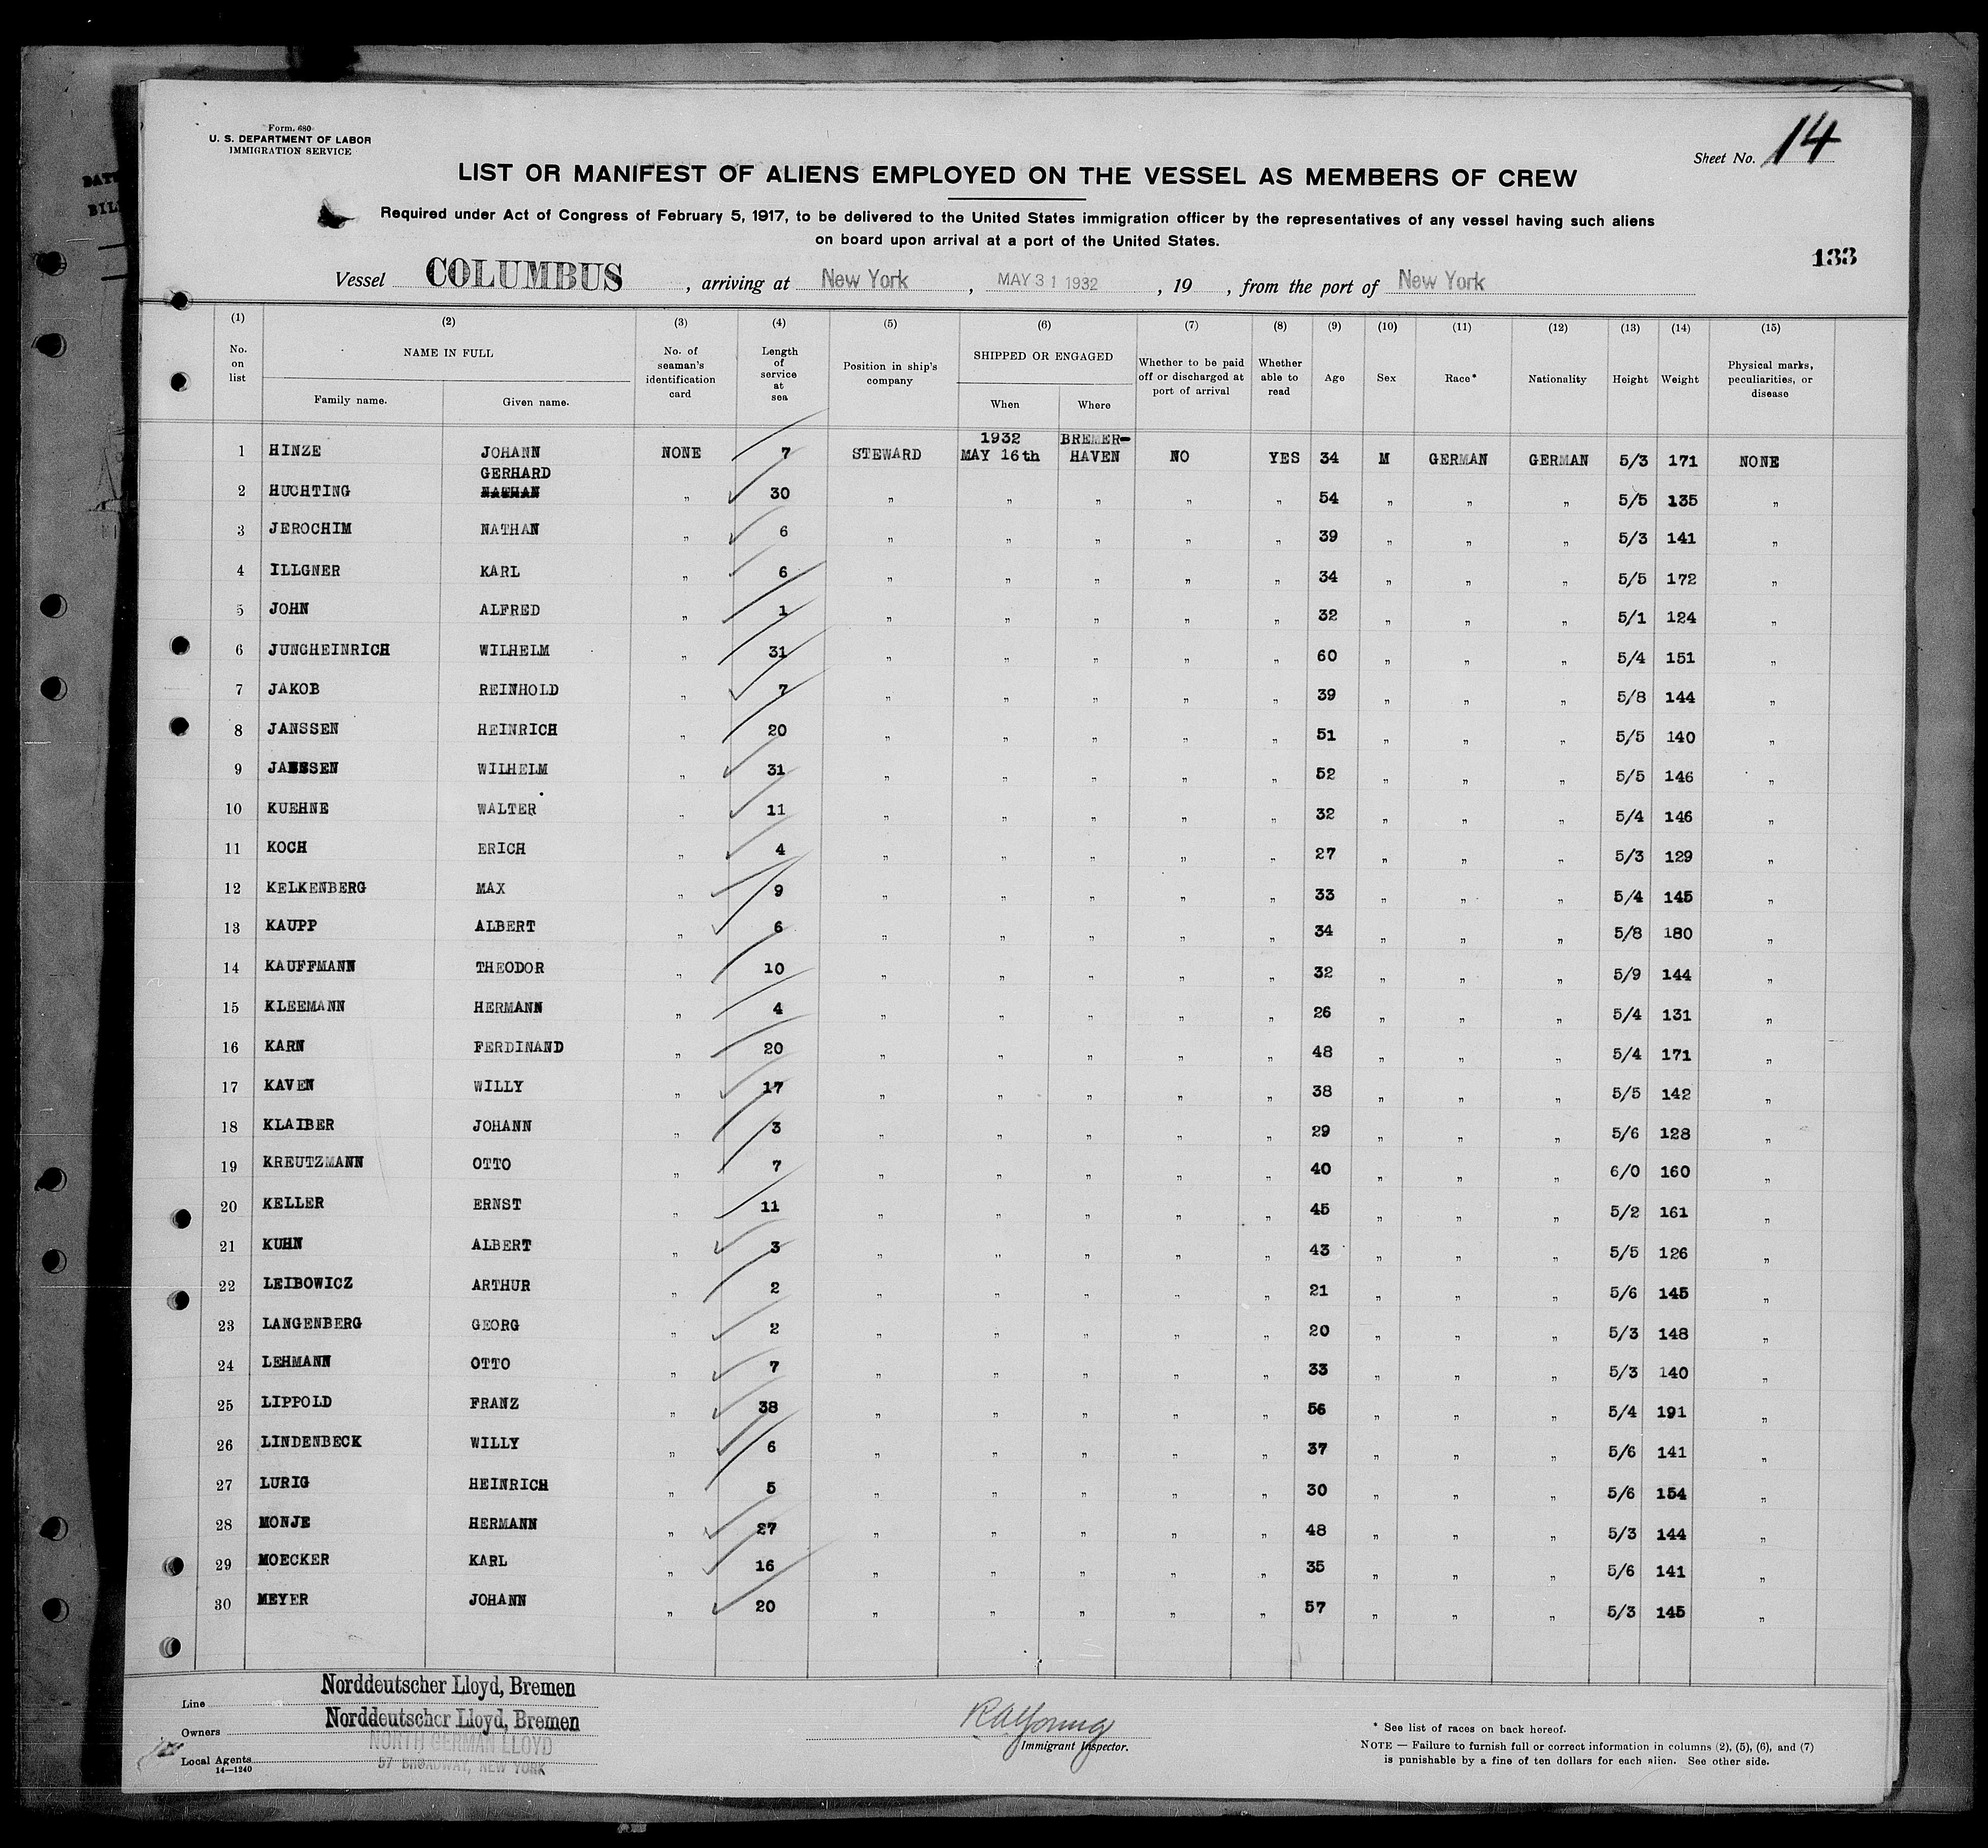 Form 680
U. S. DEPARTMENT OF LABOR
IMMIGRATION SERVICE
Sheet No. 14
LIST OR MANIFEST OF ALIENS EMPLOYED ON THE VESSEL AS MEMBERS OF CREW
Required under Act of Congress of February 5, 1917, to be delivered to the United States immigration officer by the representatives of any vessel having such aliens
on board upon arrival at a port of the United States.
133
Vessel COLUMBUS, arriving at New York, MAY 31 1932, 19 , from the port of New York
(1) (2) (3) (4) (5) (6) (7) (8) (9) (10) (11) (12) (13) (14) (15)
No. on list NAME IN FULL Family name. Given name. No. of seaman's identification card Length of service at sea Position in ship's company SHIPPED OR ENGAGED When Where Whether to be paid off or discharged at port of arrival Whether able to read Age Sex Race* Nationality Height Weight Physical marks, peculiarities, or disease
1 HINZE JOHANN NONE 7 STEWARD 1932 MAY 16th BREMER-HAVEN NO YES 34 M GERMAN GERMAN 5/3 171 NONE
2 HUCHTING GERHARD NATHAN " 30 " " " " " 54 " " " 5/5 135 "
3 JEROCHIM NATHAN " 6 " " " " " 39 " " " 5/3 141 "
4 ILLGNER KARL " 6 " " " " " 34 " " " 5/5 172 "
5 JOHN ALFRED " 1 " " " " " 32 " " " 5/1 124 "
6 JUNGHEINRICH WILHELM " 31 " " " " " 60 " " " 5/4 151 "
7 JAKOB REINHOLD " 7 " " " " " 39 " " " 5/8 144 "
8 JANSSEN HEINRICH " 20 " " " " " 51 " " " 5/5 140 "
9 WILHELM " 31 " " " " " 52 " " " 5/5 146 "
10 KUEHNE WALTER " 11 " " " " " 32 " " " 5/4 146 "
11 KOCH ERICH " 4 " " " " " 27 " " " 5/3 129 "
12 KELKENBERG MAX " 9 " " " " " 33 " " " 5/4 145 "
13 KAUPP ALBERT " 6 " " " " " 34 " " " 5/8 180 "
14 KAUFFMANN THEODOR " 10 " " " " " 32 " " " 5/9 144 "
15 KLEEMANN HERMANN " 4 " " " " " 26 " " " 5/4 131 "
16 KARN FERDINAND " 20 " " " " " 48 " " " 5/4 171 "
17 KAVEN WILLY " 17 " " " " " 38 " " " 5/5 142 "
18 KLAIBER JOHANN " 3 " " " " " 29 " " " 5/6 128 "
19 KREUTZMANN OTTO " 7 " " " " " 40 " " " 6/0 160 "
20 KELLER ERNST " 11 " " " " " 45 " " " 5/2 161 "
21 KUHN ALBERT " 3 " " " " " 43 " " " 5/5 126 "
22 LEIBOWICZ ARTHUR " 2 " " " " " 21 " " " 5/6 145 "
23 LANGENBERG GEORG " 2 " " " " " 20 " " " 5/3 148 "
24 LEHMANN OTTO " 7 " " " " " 33 " " " 5/3 140 "
25 LIPPOLD FRANZ " 38 " " " " " 56 " " " 5/4 191 "
26 LINDENBECK WILLY " 6 " " " " " 37 " " " 5/6 141 "
27 LURIG HEINRICH " 5 " " " " " 30 " " " 5/6 154 "
28 MONJE HERMANN " 27 " " " " " 48 " " " 5/3 144 "
29 MOECKER KARL " 16 " " " " " 35 " " " 5/6 141 "
30 MEYER JOHANN " 20 " " " " " 57 " " " 5/3 145 "
Line Norddeutscher Lloyd, Bremen
Owners Norddeutscher Lloyd, Bremen
NORTH GERMAN LLOYD
Local Agents 57 BROADWAY, NEW YORK
14—1240
RA Young
Immigrant Inspector.
* See list of races on back hereof.
NOTE — Failure to furnish full or correct information in columns (2), (5), (6), and (7)
is punishable by a fine of ten dollars for each alien. See other side.